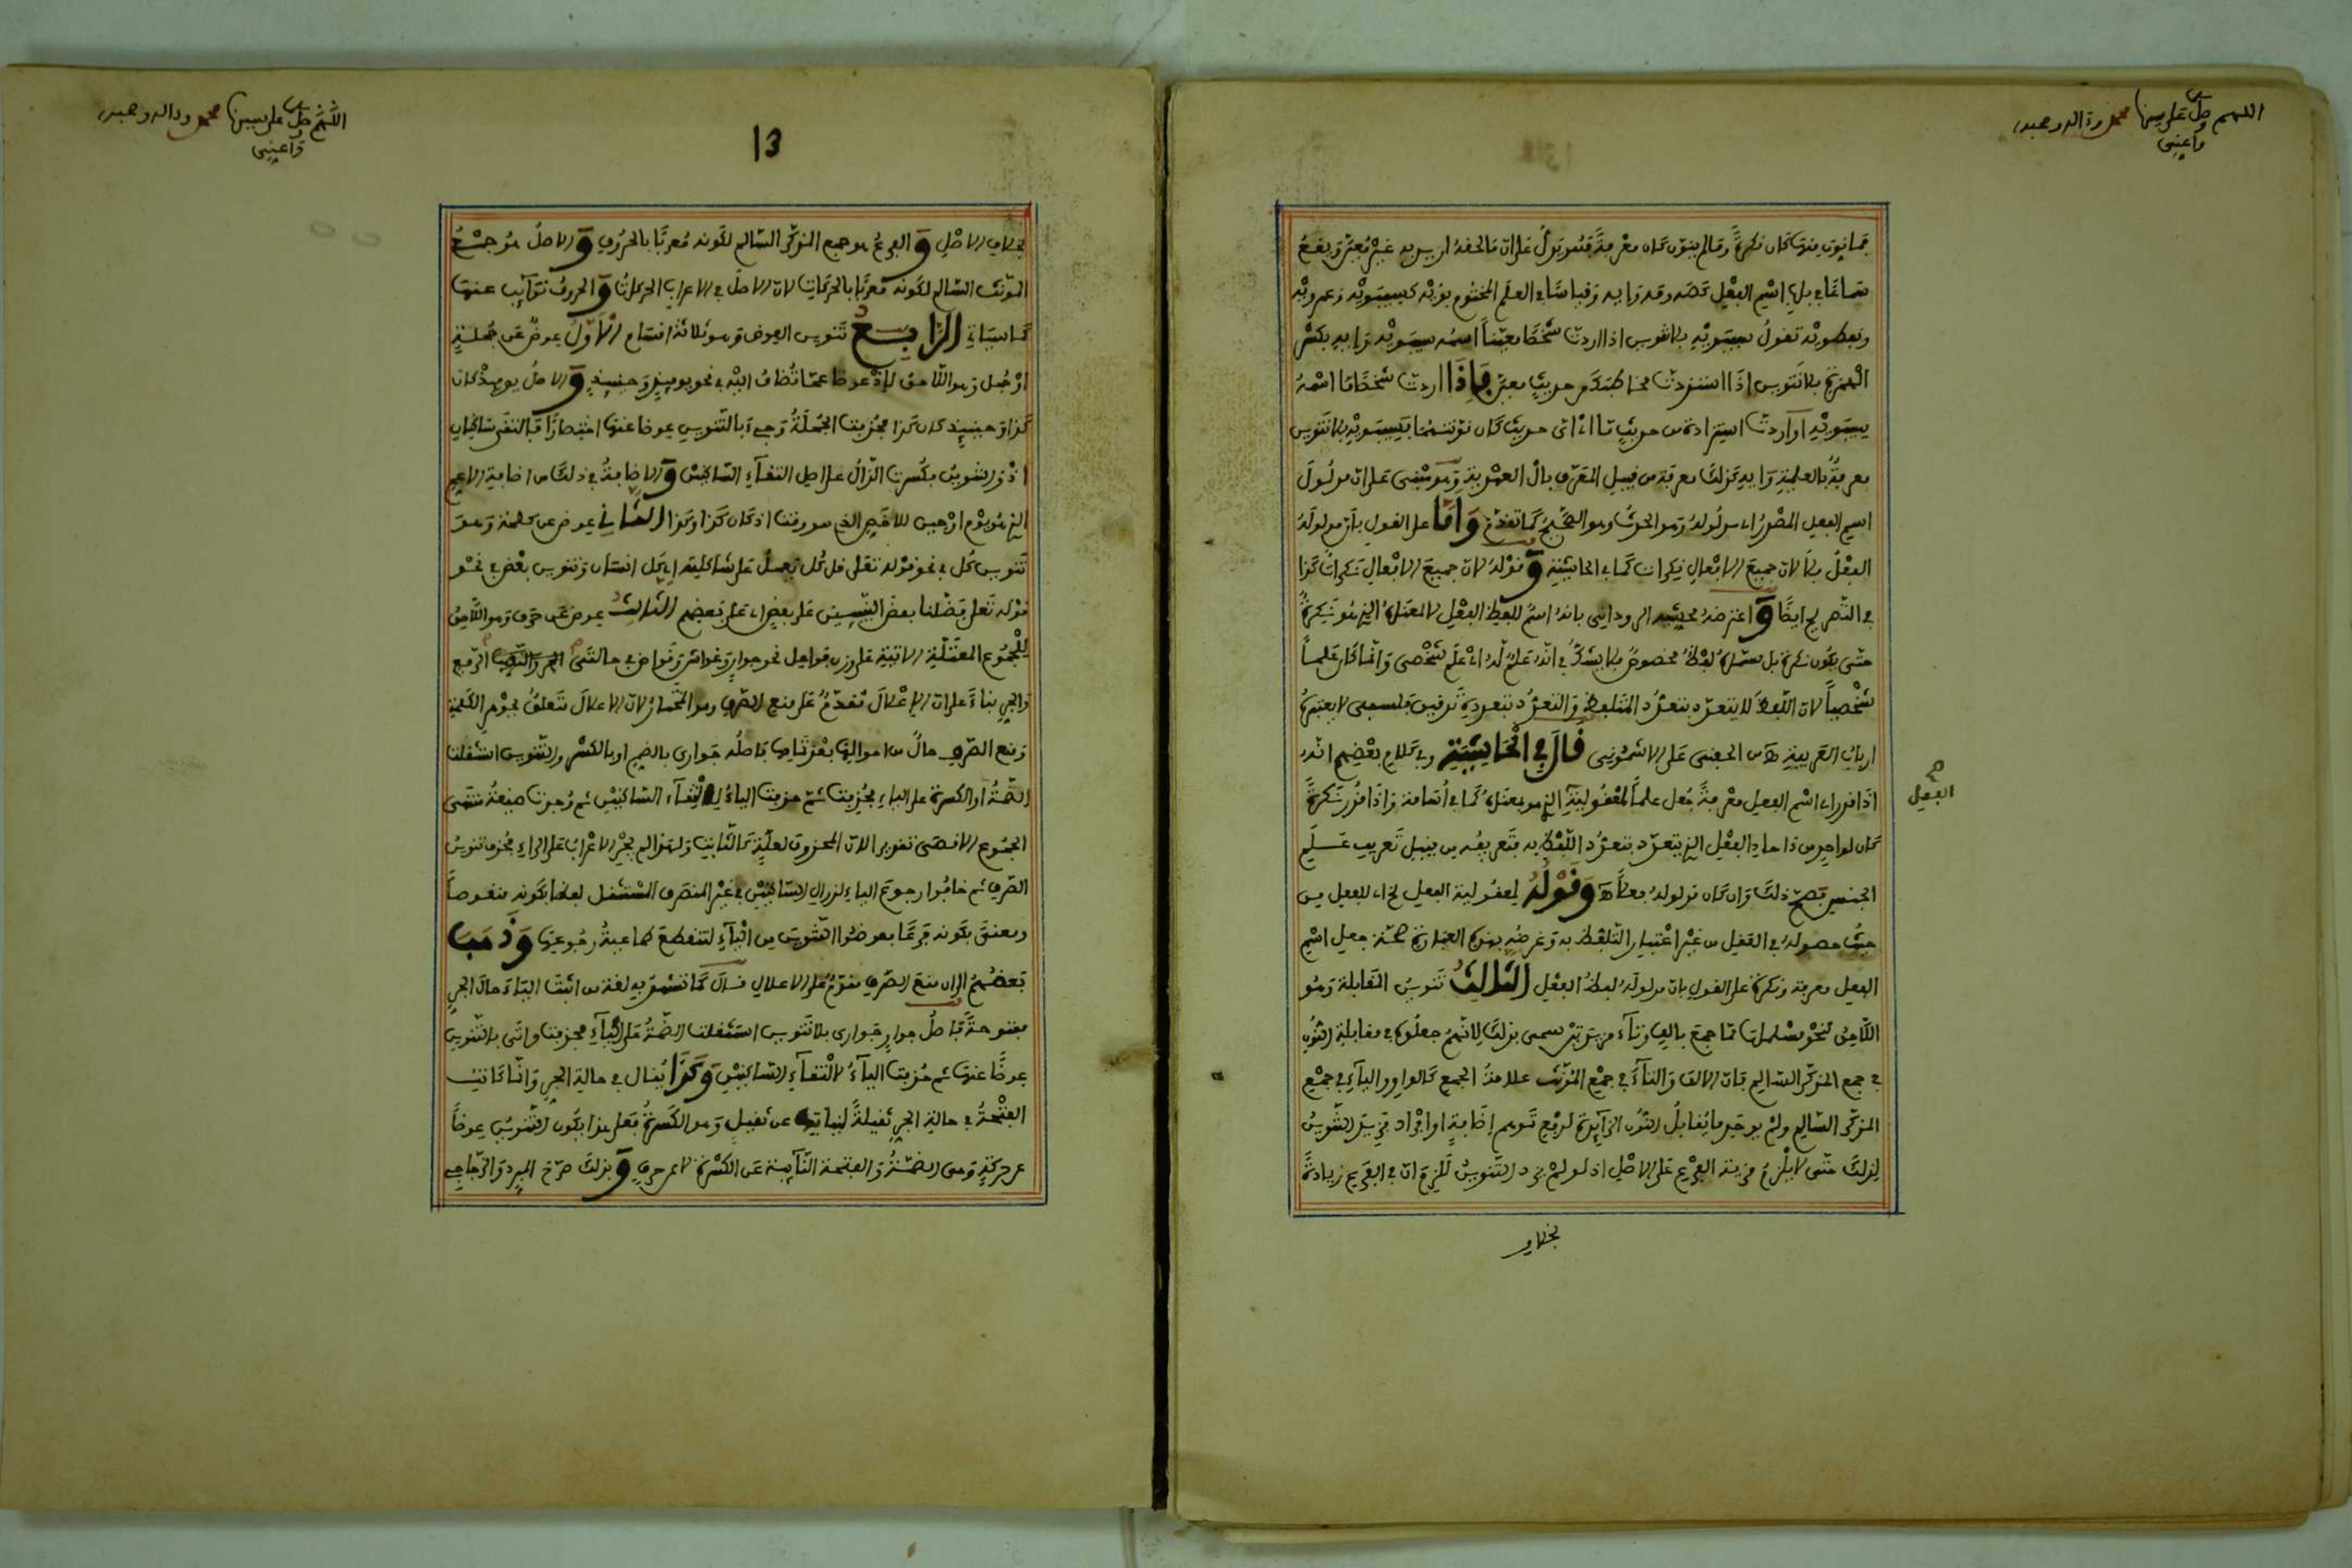 اللهم صل على سيدنا محمد وءاله وصحبه
وأعني
فما نون منها كان نكرة وما لم ينون كان معرفة فتنويره يدل على ان ما لحقه اريد به غير معين ويقع
سماعا في باب اسم الفعل كصه ومه وايه وقياسا في العلم المختوم بويه كسيبويه وعمرويه
ونفطويه تقول سيبويه بلا تنوين اذا اردت شخصا معينا اسمه سيبويه وايه بكسر
الهمزة بلا تنوين اذا استزدت مخاطبك من حديث معين فإذا اردت شخصا ما اسمه
سيبويه او اردت استزادة من حديث ما اي اي حديث كان نونتهما فسيبويه بلا تنوين
معرفة بالعلمية وايه كذلك معرفة من قبيل المعرف بال العهدية وهو مبني على ان مدلول
اسم الفعل المصدر اي مدلوله وهو الحدث وهو الصحيح كما تقدم واما على القول بأن مدلوله
الفعل فلا لان جميع الافعال نكرات كما في الحاشية وقوله لان جميع الافعال نكرات كذا
في التصريح ايضا واعترضه محشيه الروداني بانه اسم للفظ الفعل لا لمعناه الذي هو نكرة
حتى يكون نكرة بل مسماه لفظ مخصوص فلا يشك في انه علم له اي علم شخصي وانما كان علما
شخصيا لان اللفظ لا يتعدد بتعدد المتلفظ والتعدد بتعدده تدقيق فلسفي لا يعتبره
ارباب العربية اه من الحفني على الاشموني قال في الحاشية وفي كلام بعضهم انه
اذا قدر اي اسم الفعل معرفة جعل علما لمعقولية الذي هو بمعناه كما في اسامة واذا قدر نكرة
الفعل
كان لواحد من ءاحاد الفعل الذي يتعدد بتعدد اللفظ به فتعريفه من قبيل تعريف علم
الجنس فصح ذلك وان كان مدلوله فعلا اه وقوله لمعقولية الفعل اي للفعل من
حيث حصوله في العقل من غير اعتبار التلفظ به وغرضه بهذه العبارة صحة جعل اسم
الفعل معرفة ونكرة على القول بان مدلوله لفظ الفعل الثالث تنوين المقابلة وهو
اللاحق لنحو مسلمات مما جمع بالف وتاء مزيدتين سمي بذلك لانهم جعلوه في مقابلة النون
في جمع المذكر السالم فان الالف والتاء في جمع المؤنث علامة الجمع كالواو والياء في جمع
المذكر السالم ولم يوجد ما يقابل النون الزائدة لدفع توهم إضافة او افراد فزيد التنوين
لذلك حتى لا يلزم مزية الفرع على الاصل اذ لو لم يزد التنوين للزم ان في الفرع زيادة
بخلاف
اللهم صل على سيدنا محمد وءاله وصحبه
وأعني
13
بخلاف الاصل والفرع هو جمع المذكر السالم لكونه معربا بالحروف والاصل هو جمع
المؤنث السالم لكونه معربا بالحركات لان الاصل في الاعراب الحركات والحروف نوائب عنها
كما سيأتي الرابع تنوين العوض وهو ثلاثة اقسام الاول عوض عن جملة
او جمل وهو اللاحق لإذ عوضا عما تضاف اليه في نحو يومئذ وحينئذ والاصل يوم إذ كان
كذا وحينئذ كان كذا فحذفت الجملة وجيء بالتنوين عوضا عنها اختصارا فالتقى ساكنان
اذ والتنوين فكسرت الذال على اصل التقاء الساكنين والاضافة في ذلك من اضافة الاعم
الذي هو يوم او حين للاخص الذي هو وقت اذ كان كذا وكذا الثاني عوض عن كلمة وهو
تنوين كل في نحو قوله تعالى قل كل يعمل على شاكلته اي كل انسان وتنوين بعض في نحو
قوله تعالى فضلنا بعض النبيئين على بعض اي على بعضهم الثالث عوض عن حرف وهو اللاحق
للجموع المعتلة الاتية على وزن فواعل نحو جوار وغواش وقواض في حالتي الرفع
والجر بناء على ان الاعلال مقدم على منع الصرف وهو المختار لان الاعلال تتعلق بجوهر الكلمة
ومنع الصرف حال من احوالها بعد تمامها فاصله جواري بالضم او بالكسر والتنوين استثقلت
الضمة او الكسرة على الياء فحذفت ثم حذفت الياء لالتقاء الساكنين ثم وجدت صيغة منتهى
الجموع الاقصى تقديرا لان المحذوف لعلة كالثابت ولهذا لم يجر الاعراب على الراء فحذف تنوين
الصرف ثم خافوا رجوع الياء لزوال الساكنين في غير المنصرف المستثقل لفظا بكونه منقوصا
ومعنى بكونه فرعا فعوضوا التنوين من الياء لتنقطع طماعية رجوعها وذهب
بعضهم الى ان منع الصرف مقدم على الاعلال قال كما تشهد به لغة من اثبت الياء حال الجر
مفتوحة فاصل جوار جواري بلا تنوين استثقلت الضمة على الياء فحذفت واتي بالتنوين
عوضا عنها ثم حذفت الياء لالتقاء الساكنين وكذا يقال في حالة الجر وانما كانت
الفتحة في حالة الجر ثقيلة لنيابتها عن ثقيل وهو الكسرة فعلى هذا يكون التنوين عوضا
عن حركة وهي الضمة والفتحة النائبة عن الكسرة لا عن حرف وبذلك صرح المبرد والزجاجي